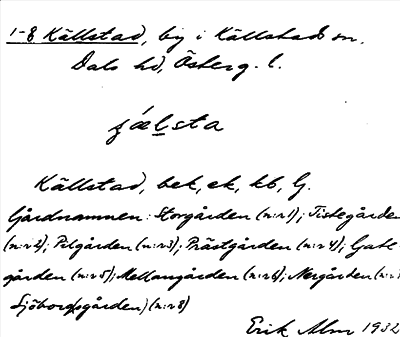 1-8 Källstad, by i Källstads sn.
Dals hd, Österg. l.
Källstad, bek, ek, kb, G.
Gårdnamnen: Storgården (n:r 1); Tiskegården
(n:r 2); Pilgården (n:r 3); Prästgården (n:r 4); Gate-
gården (n:r 5); Mellangården (n:r 6); Nergården (n:r
Sjöborgsgården) (n:r 8)
Erik Alm 1932